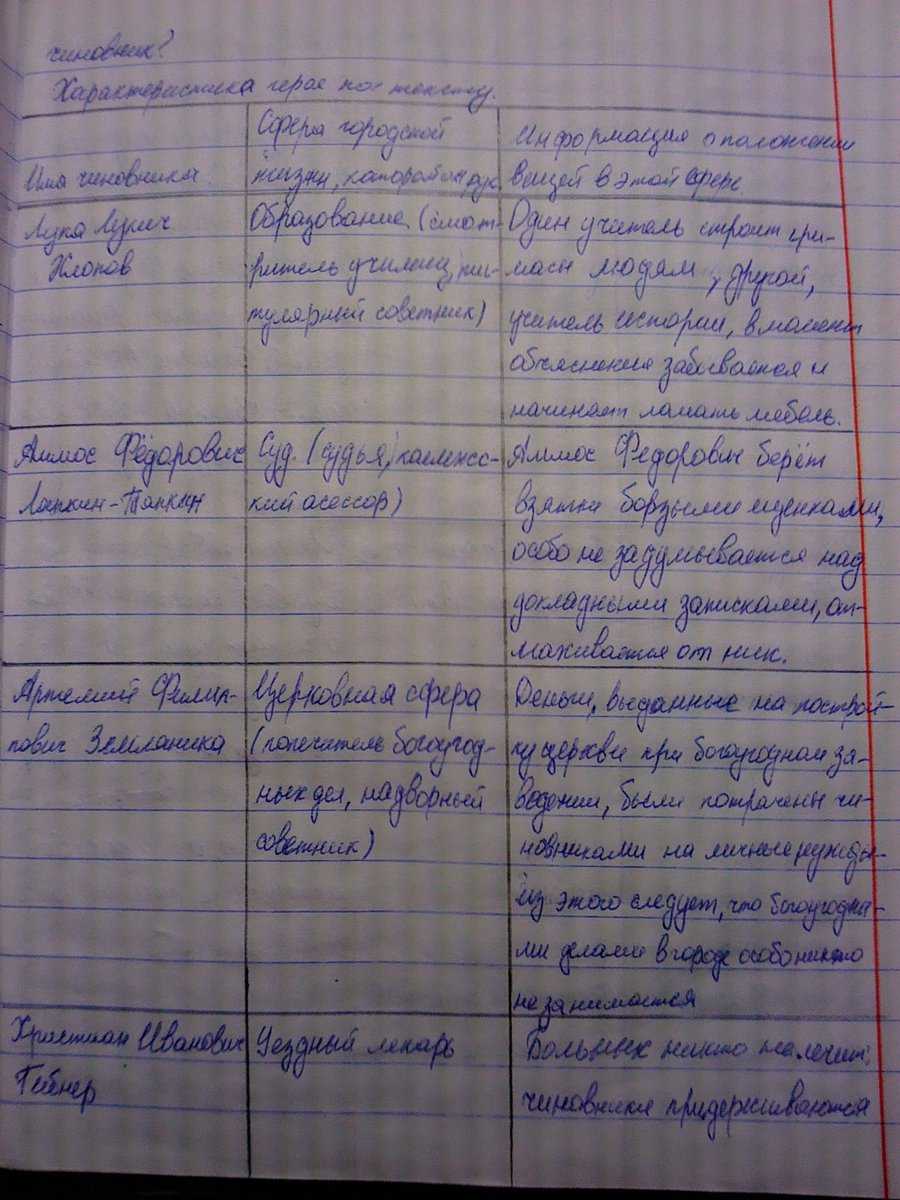 чиновник?
Характеристика герое по тексту.
Имя чиновника
Сфера городской
жизни, которой он рук.
Информация о положении
вещей в этой сфере
Лука Лукич
Хлопов
Образование (смот-
ритель училищ, ти-
тулярный советник)
Один учитель строит гри-
масы людям, другой,
учитель истории, в момент
объяснения забывается и
начинает ломать мебель.
Аммос Фёдорович
Ляпкин-Тяпкин
Суд. (судья, коллежс-
кий асессор)
Аммос Федорович берёт
взятки борзыми щенками,
особо не задумывается над
докладными записками, от-
махивается от них.
Артемий Филип-
пович Земляника
Церковная сфера
(попечитель богоугод-
ных дел, надворный
советник)
Деньги, выданные на построй-
ку церкви при богоугодном за-
ведении, были потрачены чи-
новниками на личные нужды.
из этого следует, что богоугодны-
ми делами в городе особо никто
не занимается
Христиан Иванович
Гибнер
Уездный лекарь
Больных никто не лечит:
чиновники придерживаются